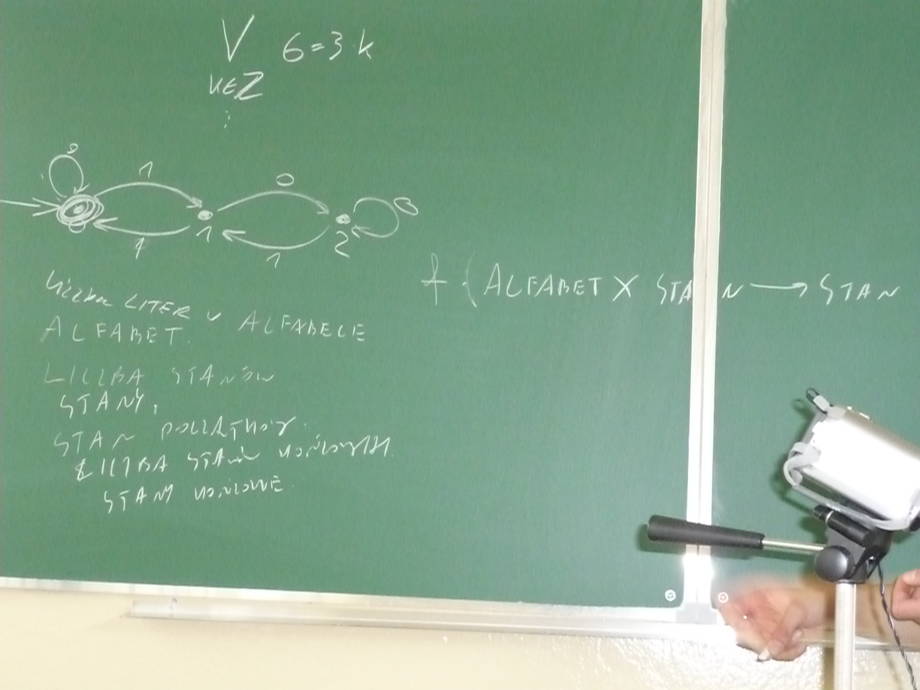 V 6=3k
k∈Z
⋮
0 1 0 0
1 1 1 2
LICZBA LITER W ALFABECIE
ALFABET.
f (ALFABET X STAN → STAN
LICZBA STANÓW
STANY,
STAN POCZĄTKOWY.
LICZBA STANÓW KOŃCOWYCH.
STANY KOŃCOWE.